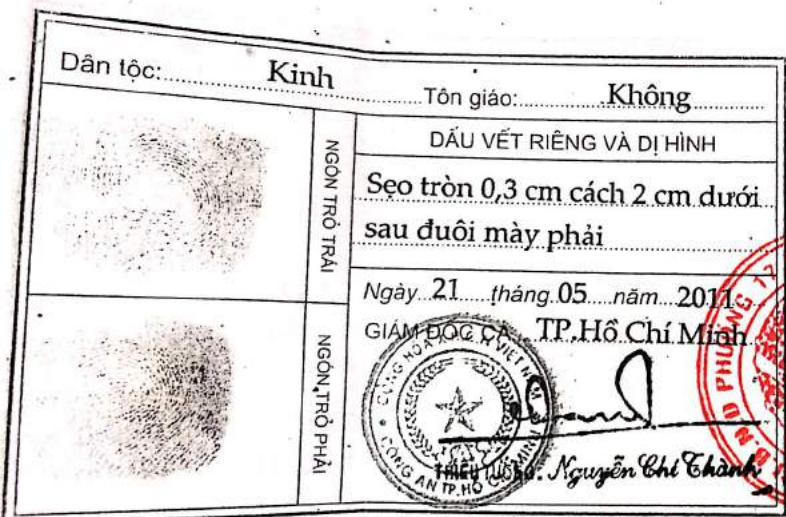 Dân tộc: Kinh
Tôn giáo: Không
NGÓN TRỎ TRÁI
DẤU VẾT RIÊNG VÀ DỊ HÌNH
Sẹo tròn 0,3 cm cách 2 cm dưới
sau đuôi mày phải
Ngày 21 tháng 05 năm 2011
GIÁM ĐỐC CA TP.Hồ Chí Minh
NGÓN TRỎ PHẢI
CÔNG AN TP.HỒ CHÍ MINH
THIẾU TƯỚNG. Nguyễn Chí Thành
U.B.N.D PHƯỜNG 17